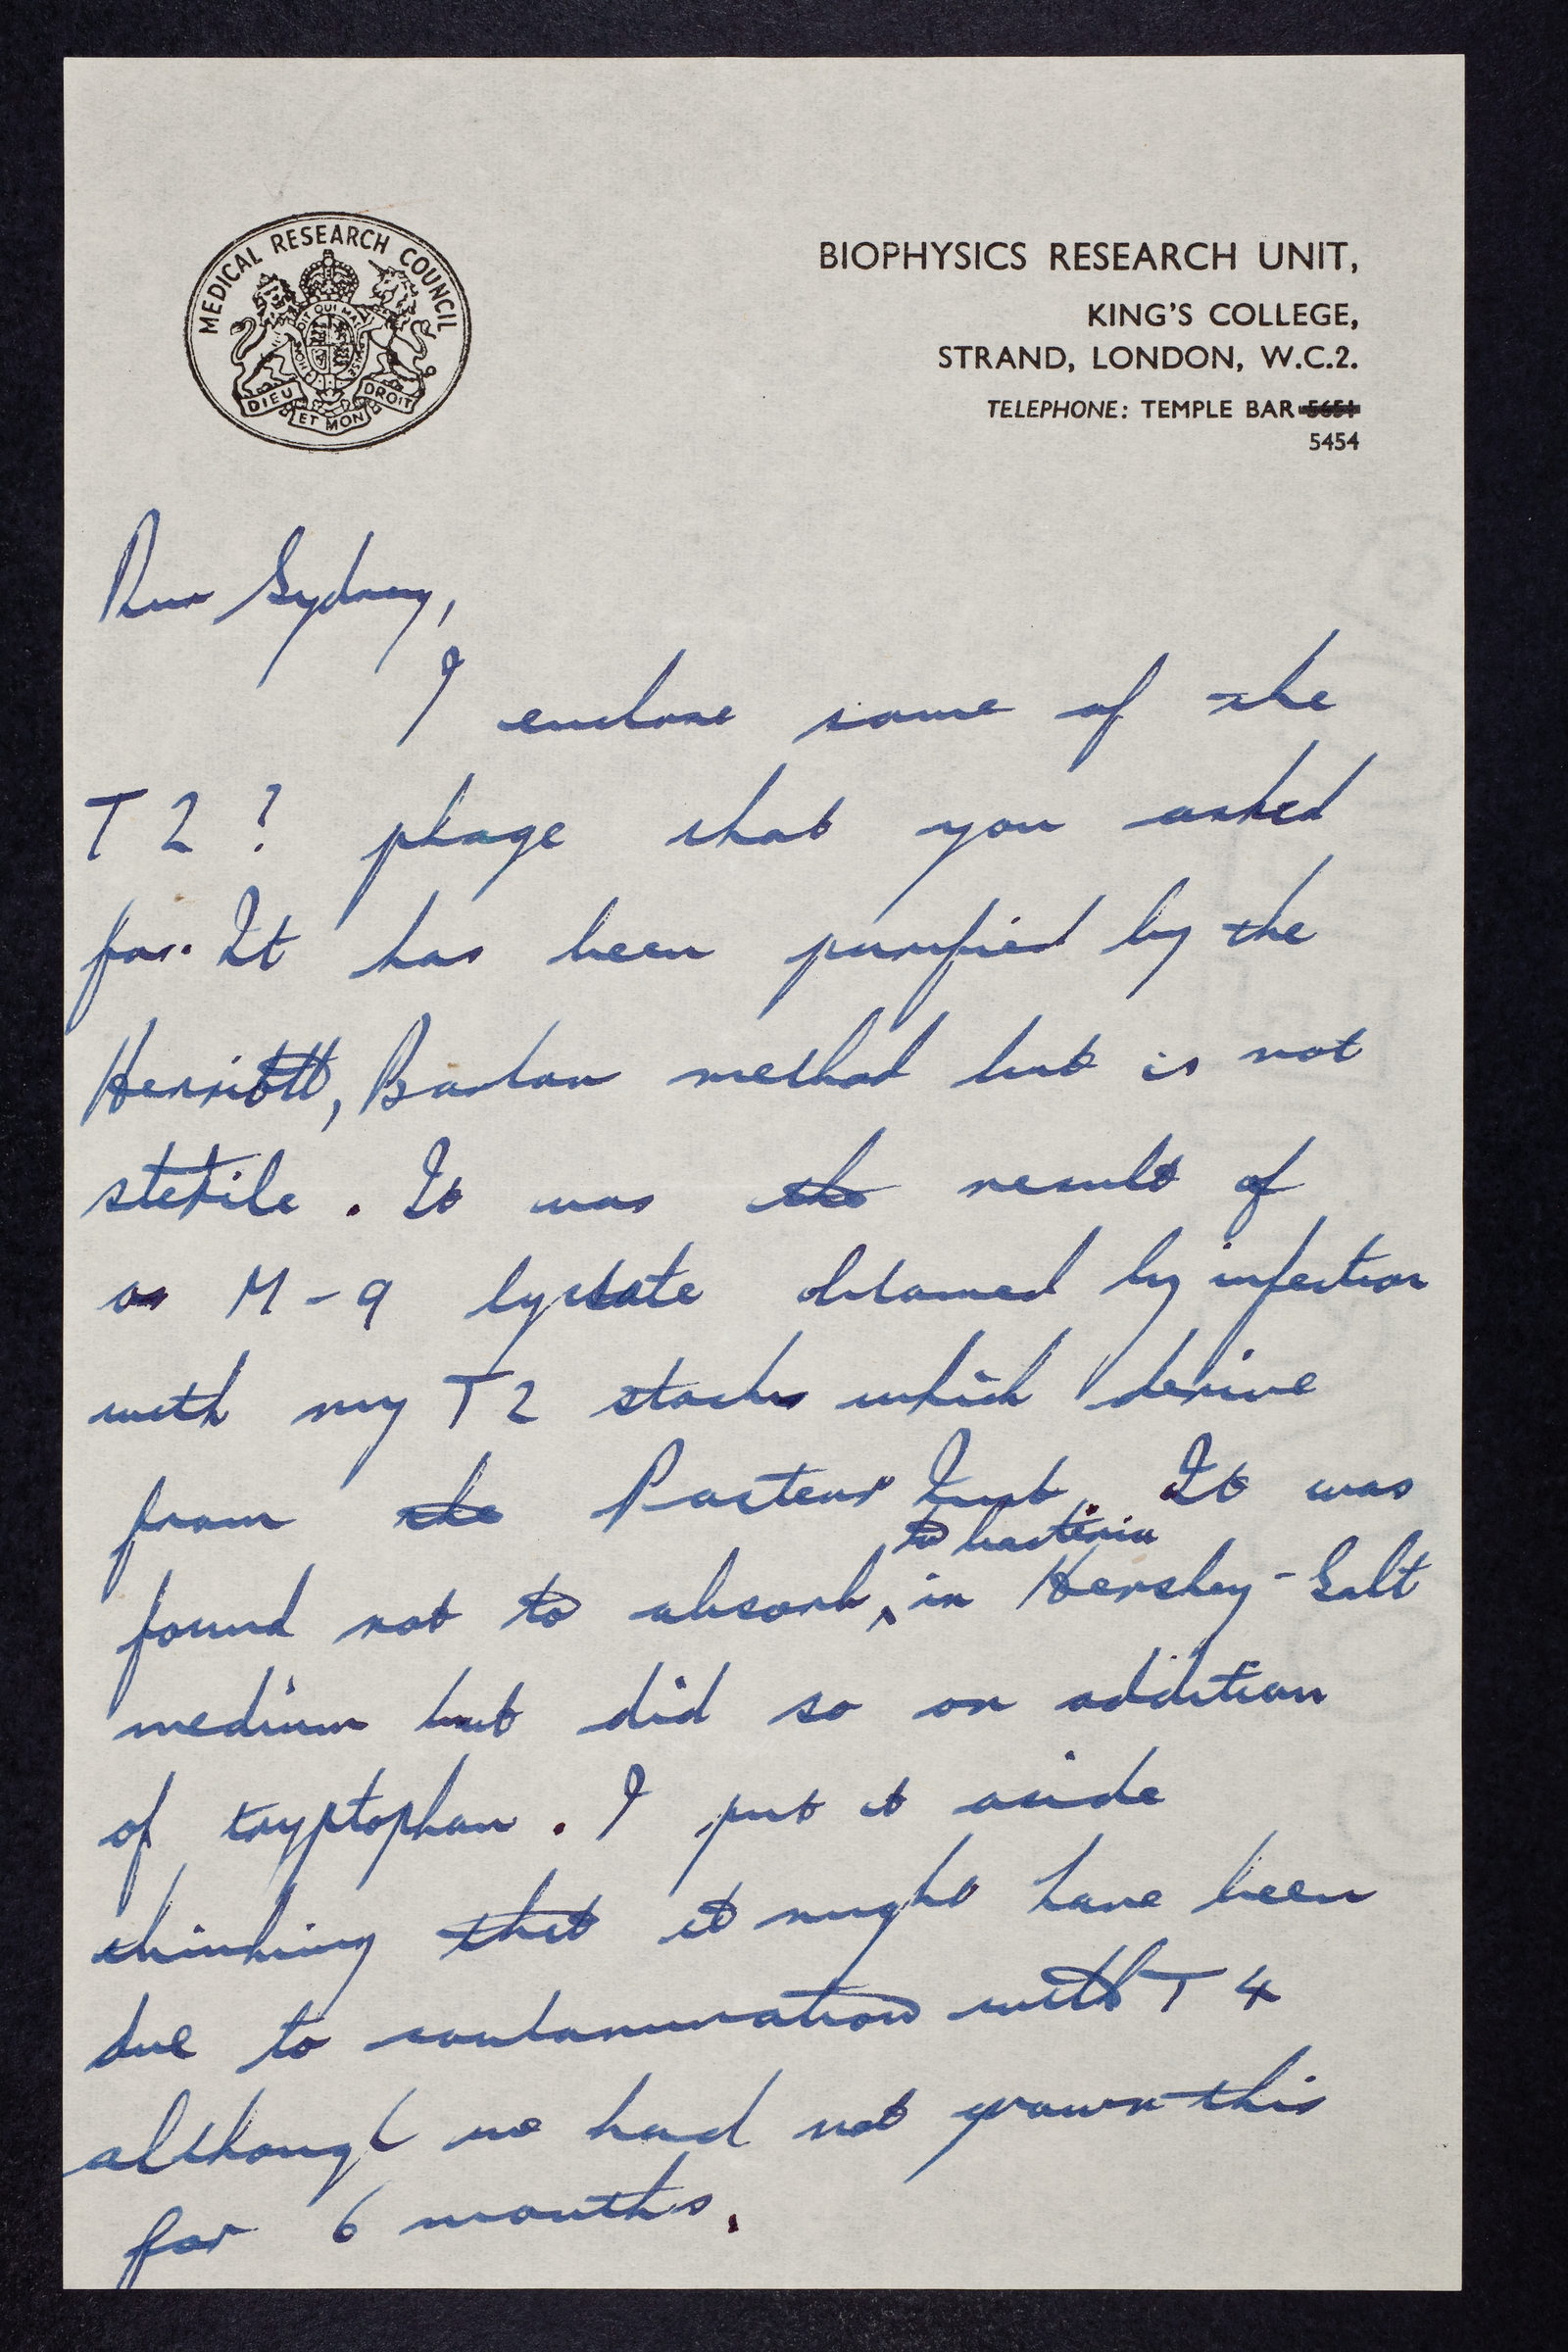 MEDICAL RESEARCH COUNCIL
DIEU ET MON DROIT
BIOPHYSICS RESEARCH UNIT,
KING'S COLLEGE,
STRAND, LONDON, W.C.2.
TELEPHONE: TEMPLE BAR 5651
5454
Dear Sydney,
I enclose some of the
T2? phage that you asked
for. It has been purified by the
Herriott, Barlow method but is not
sterile. It was the result of
an M-9 lysate obtained by infection
with my T2 stocks which derive
from the Pasteur Inst. It was
to bacteria
found not to absorb in Hershey-Salt
medium but did so on addition
of tryptophan. I put it aside
thinking that it might have been
due to contamination with T4
although we had not grown this
for 6 months.